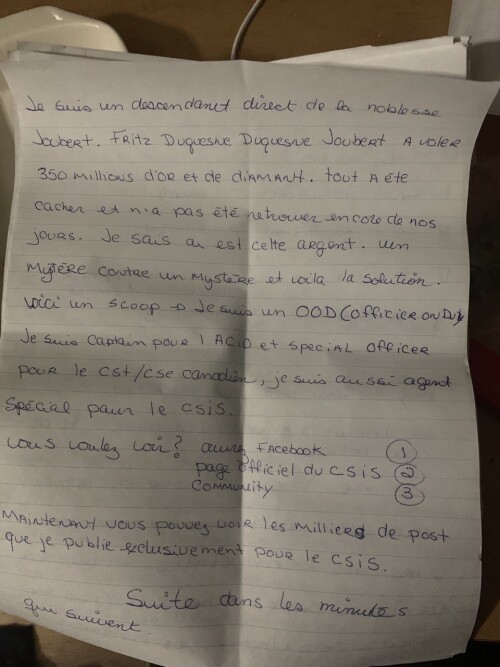 Je suis un descendanet direct de la noblesse
Joubert. Fritz Duquesne Duquesne Joubert A voler
350 millions d'or et de diamant. tout A été
cacher et n'a pas été retrouver encore de nos
jours. Je sais ou est cette argent. un
mystère contre un mystère et voila la solution.
Voici un scoop → Je suis un OOD (officier on Duty
Je suis captain pour l ACID et special officer
pour le cst/cse canadien, je suis aussi agent
spécial pour le CSIS.
vous voulez voir? ouvrez FACEBOOK 1
page officiel du CSIS 2
COMMUNITY 3
MAINTENANT vous pouvez voir les milliers de post
que je publie exclusivement pour le CSIS.
Suite dans les minutes
que suivent.